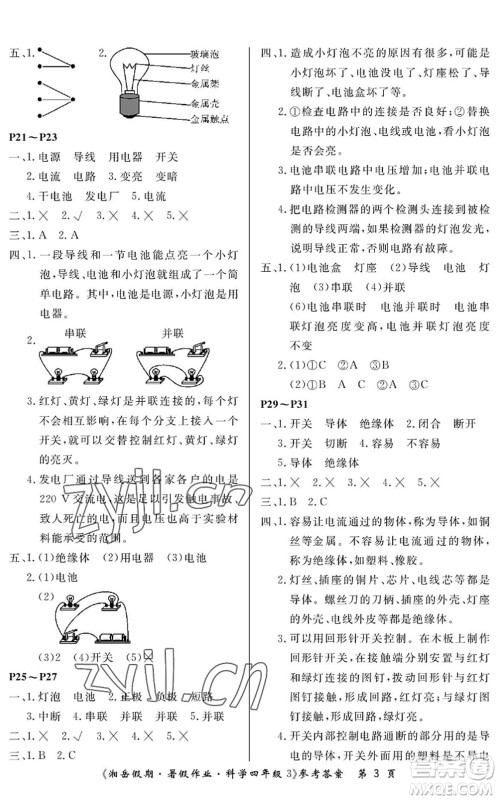 五、1.
2.
玻璃泡
灯丝
金属架
金属壳
金属触点
P21～P23
一、1. 电源 导线 用电器 开关
2. 电流 电路 3. 变亮 变暗
4. 干电池 发电厂 蓄电池
二、1. × 2. √ 3. × 4. × 5. ×
三、1. A 2. A
四、1. 一段导线和一节电池能点亮一个小灯
泡，导线、电池和小灯泡就组成了一个简
单电路。其中，电池是电源，小灯泡是用
电器。
2.
串联
并联
3. 红灯、黄灯、绿灯是并联连接的，每个灯
不会相互影响，在每个分支上接入一个
开关，就可以交替控制红灯、黄灯、绿灯
的亮灭。
4. 发电厂通过导线送到各家各户的电是
220 V 交流电，使用不当会引起触电事故，
致人死亡的电压，也远高于科学实验材料
能承受的范围。
五、1. (1)绝缘体 (2)用电器 (3)电池
2. (1)电池
(2)
(3)2 (4)开关 (5)×
P25～P27
一、1. 灯泡 电池 2. 正极 负极 短路
3. 中断 4. 串联 5. 串联 并联
二、1. × 2. √ 3. × 4. × 5. ×
三、1. B 2. C
四、1. 造成小灯泡不亮的原因有很多，可能是小
灯泡坏了、电池没电了、灯座坏了、导线坏
了、电池盒坏了、连接时接触不良等。
2. ①检查电路中的连接是否良好；②替换
电路中的小灯泡、电线或电池，看看是否
出现了故障。
3. 串联电路中电压增加；并联电路中电压
不发生改变。
4. 把电路检测器的两个检测头分别与被
检测的导线两端相连，检测器的灯泡发光，
说明导线是好的。
五、1. (1)电池盒 灯座 (2)导线 电池 灯
泡 (3)串联 (4)并联
(6)电池串联时 电池并联时 电池串联
时灯泡亮度变高，电池并联时灯泡亮度
不变
2. (1)①C ②A ③B
(2)①串联 ②并联
P29～P31
一、1. 开关 导体 绝缘体 2. 闭合 断开
3. 开关 切断 4. 并联 5. 开关
二、1. × 2. × 3. √ 4. ×
5. 导体 绝缘体
三、1. B 2. C
四、1. 容易让电流通过的物体，称为导体，如铜
丝等金属。不容易让电流通过的物体，
称为绝缘体，如塑料、橡胶。
2. 灯丝、插座的铜片、电池芯、导线的金属
丝等是导体；灯座的外壳、插座的外壳、
电线的外皮等是绝缘体。
3. 可以用回形针开关控制。在木板上制作
回形针开关，在接触端分别安装与红灯
和绿灯连接的图钉，回形针与红灯线路
图钉接触，红灯亮；与绿灯线路图钉接
触，绿灯亮。
4. 开关控制电流通过，内部材料是导体；外
部直接与人接触，使用的材料是不导电
的绝缘体。
《湘岳假期·暑假作业·科学四年级 3》参考答案 第 3 页
zyjl.cn